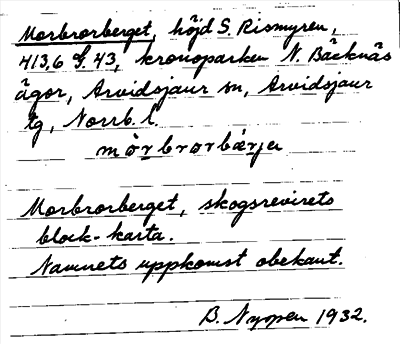 Morbrorberget, höjd S. Rismyren,
413,6 G. 43, kronoparken N. Bäcknäs
ägor, Arvidsjaur sn, Arvidsjaur
tg, Norrb. l.
mòrbrorbærje
Morbrorberget, skogsrevirets
block-karta.
Namnets uppkomst obekant.
B. Nyman 1932.